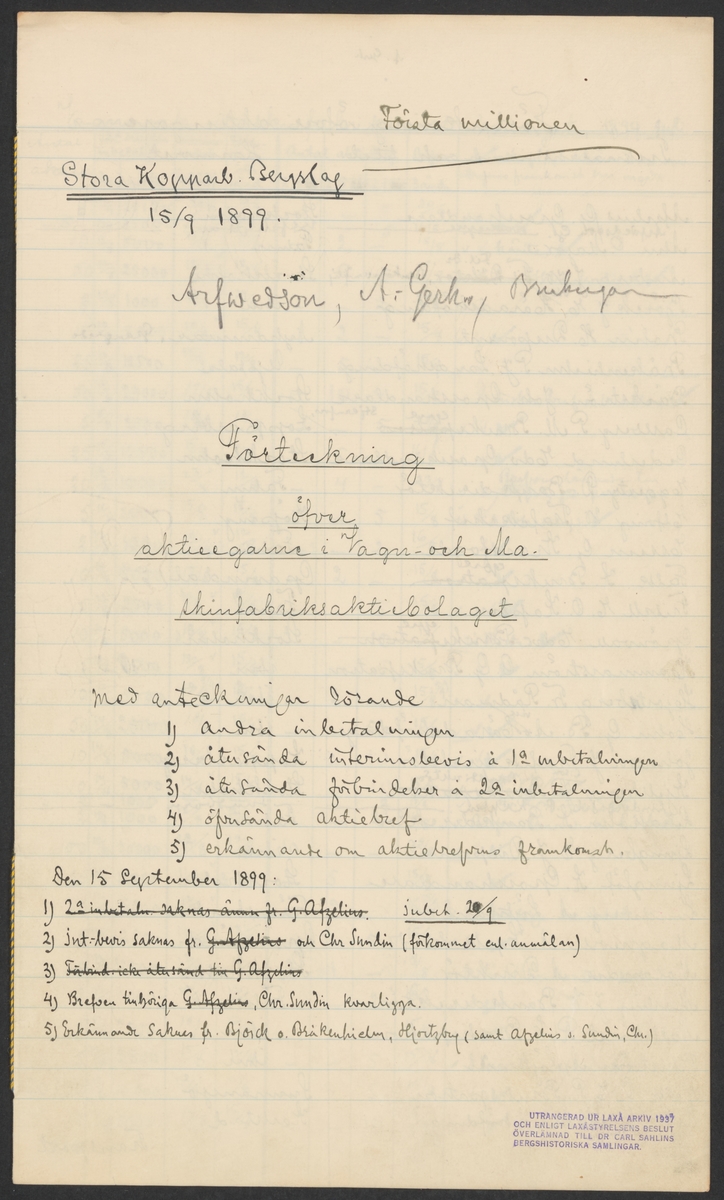 Första millionen
Stora Kopparb. Bergslag
15/9 1899.
Arfwedson, A. Gerh.,
Förteckning
öfver
aktieegarne i Vagn- och Ma-
skinfabriksaktiebolaget
Med anteckningar rörande
1) andra inbetalningen
2) återsända interimsbevis å 1a inbetalningen
3) återsända förbindelser å 2a inbetalningen
4) öfversända aktiebref
5) erkännande om aktiebrefvens framkomst.
Den 15 September 1899:
1) 2a inbetaln. saknas ännu fr. G. Afzelius. inbet. 20/9
2) Int.-bevis saknas fr. G. Afzelius och Chr Sundin (förkommet enl. anmälan)
3) Förbind. icke återsänd till G. Afzelius
4) Brefven tillhöriga G. Afzelius, Chr. Sundin kvarligga.
5) Erkännande saknas fr. Björck o. Bråkenhielm, Hjortzberg (samt Afzelius o. Sundin, Chr.)
UTRANGERAD UR LAXÅ ARKIV 1937
OCH ENLIGT LAXÅSTYRELSENS BESLUT
ÖVERLÄMNAD TILL DR CARL SAHLINS
BERGSHISTORISKA SAMLINGAR.